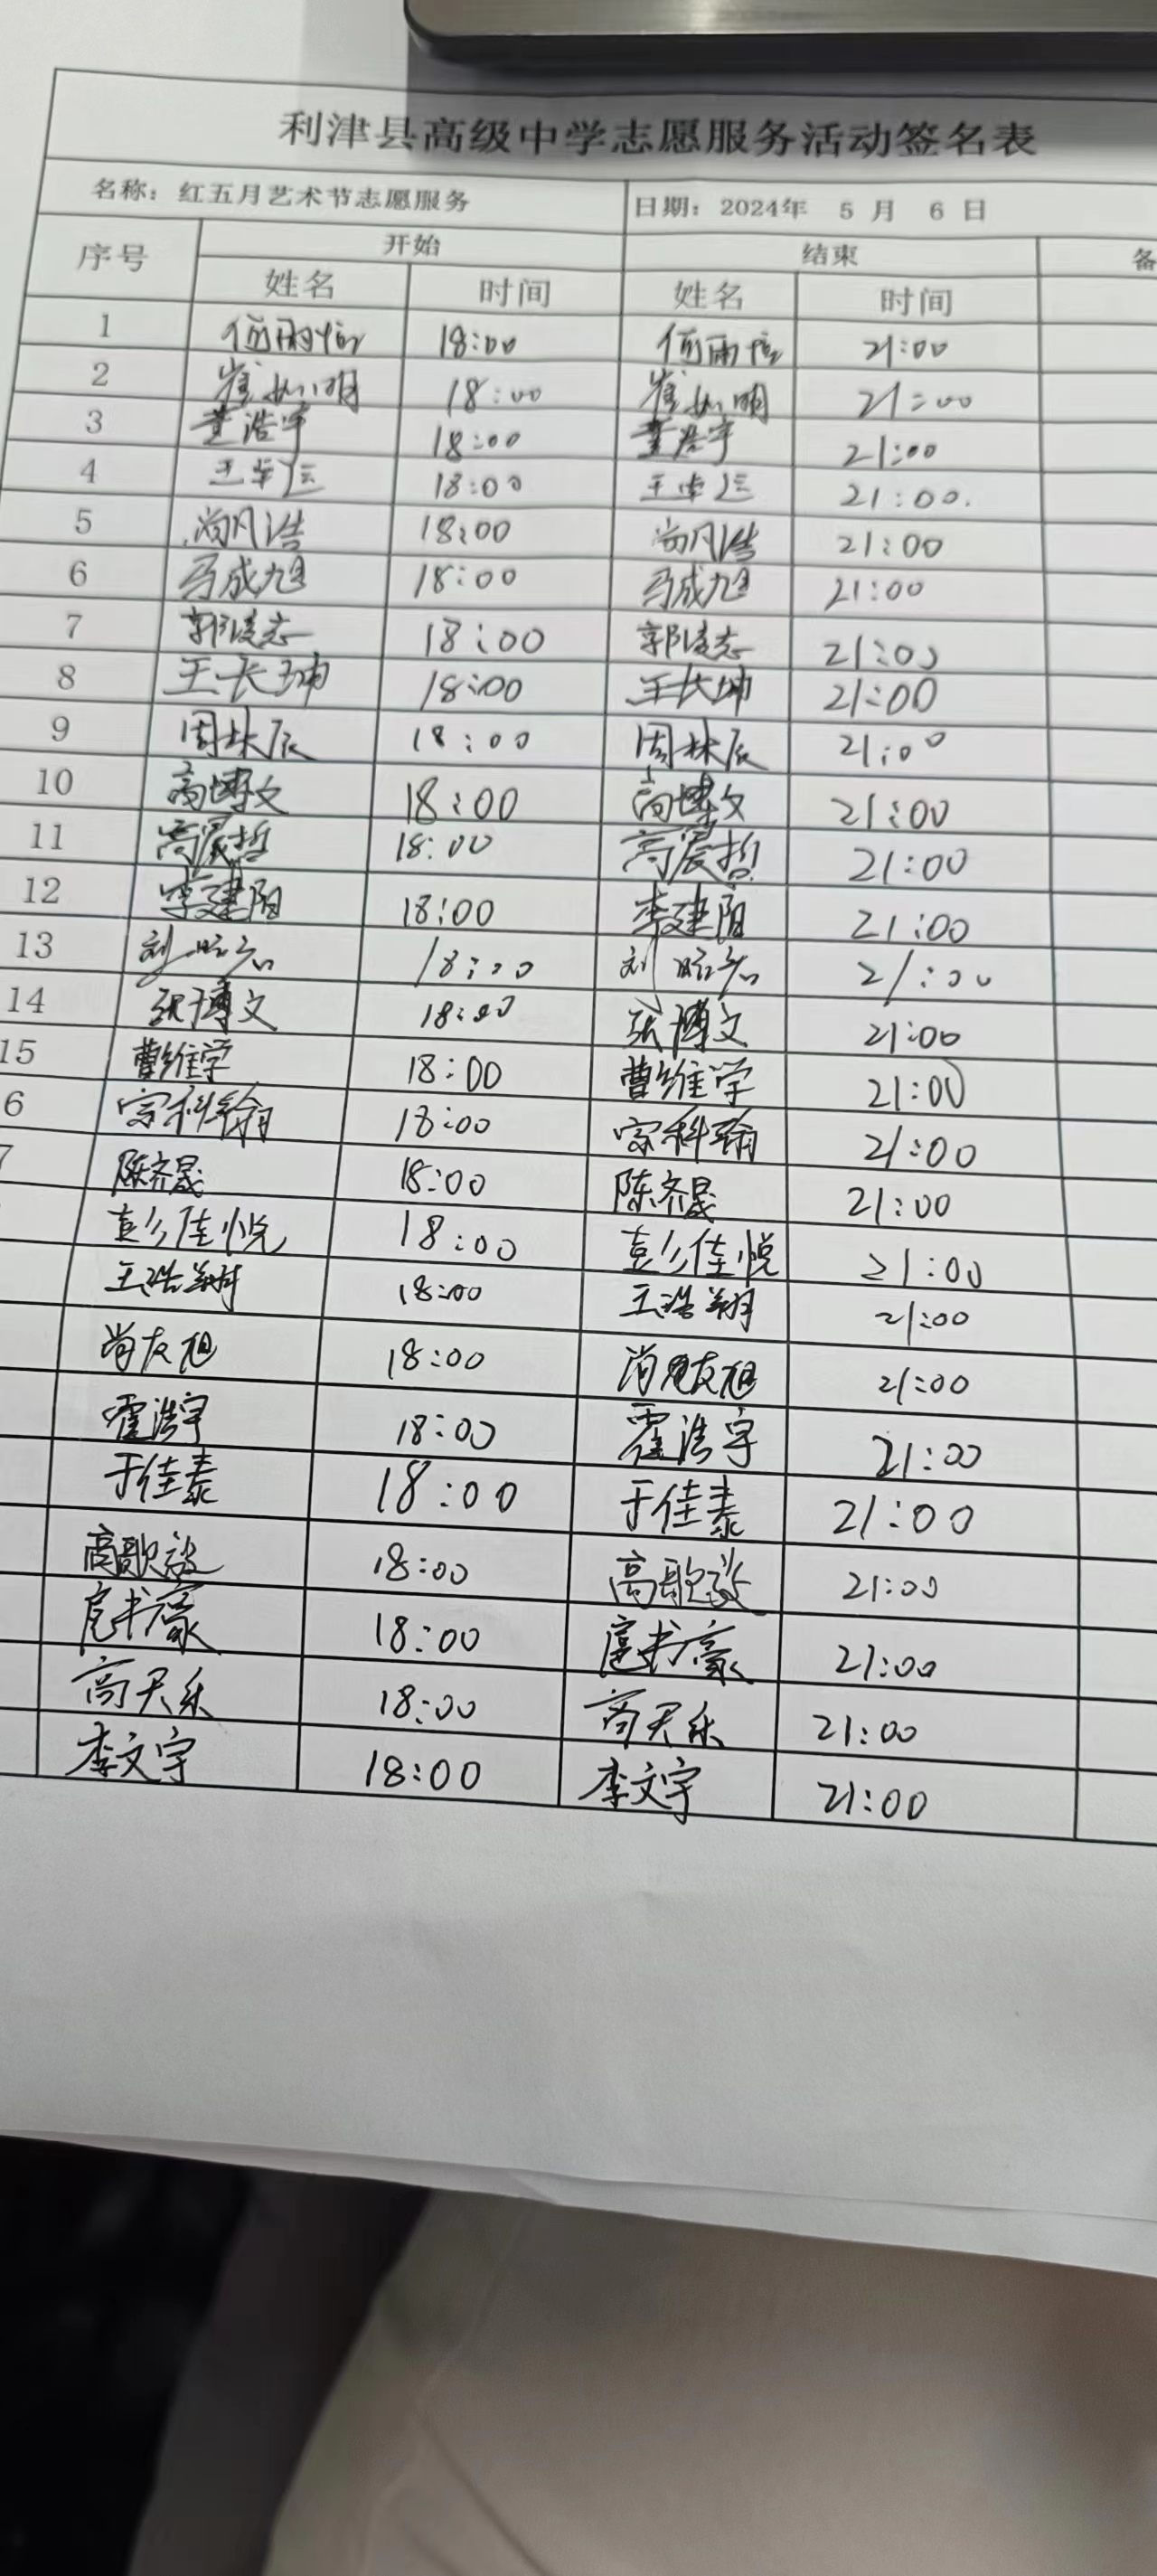 利津县高级中学志愿服务活动签名表
名称：红五月艺术节志愿服务 日期：2024年 5 月 6 日
序号 开始 结束 备
姓名 时间 姓名 时间
1 18:00 21:00
2 崔 明 18:00 崔 明 21:00
3 董浩宇 18:00 董浩宇 21:00
4 王 18:00 王 21:00.
5 尚凡浩 18:00 尚凡浩 21:00
6 马成旭 18:00 马成旭 21:00
7 郭凌志 18:00 郭凌志 21:00
8 王长坤 18:00 王长坤 21:00
9 周林辰 18:00 周林辰 21:00
10 高博文 18:00 高博文 21:00
11 高晨哲 18:00 高晨哲 21:00
12 李建阳 18:00 李建阳 21:00
13 刘 18:00 刘 21:00
14 张博文 18:00 张博文 21:00
15 曹维学 18:00 曹维学 21:00
6 宋科翰 18:00 宋科翰 21:00
7 陈齐晟 18:00 陈齐晟 21:00
彭佳悦 18:00 彭佳悦 21:00
王浩翔 18:00 王浩翔 21:00
尚友旭 18:00 尚友旭 21:00
霍浩宇 18:00 霍浩宇 21:00
于佳泰 18:00 于佳泰 21:00
高歌 18:00 高歌 21:00
扈书豪 18:00 扈书豪 21:00
高天乐 18:00 高天乐 21:00
李文宇 18:00 李文宇 21:00